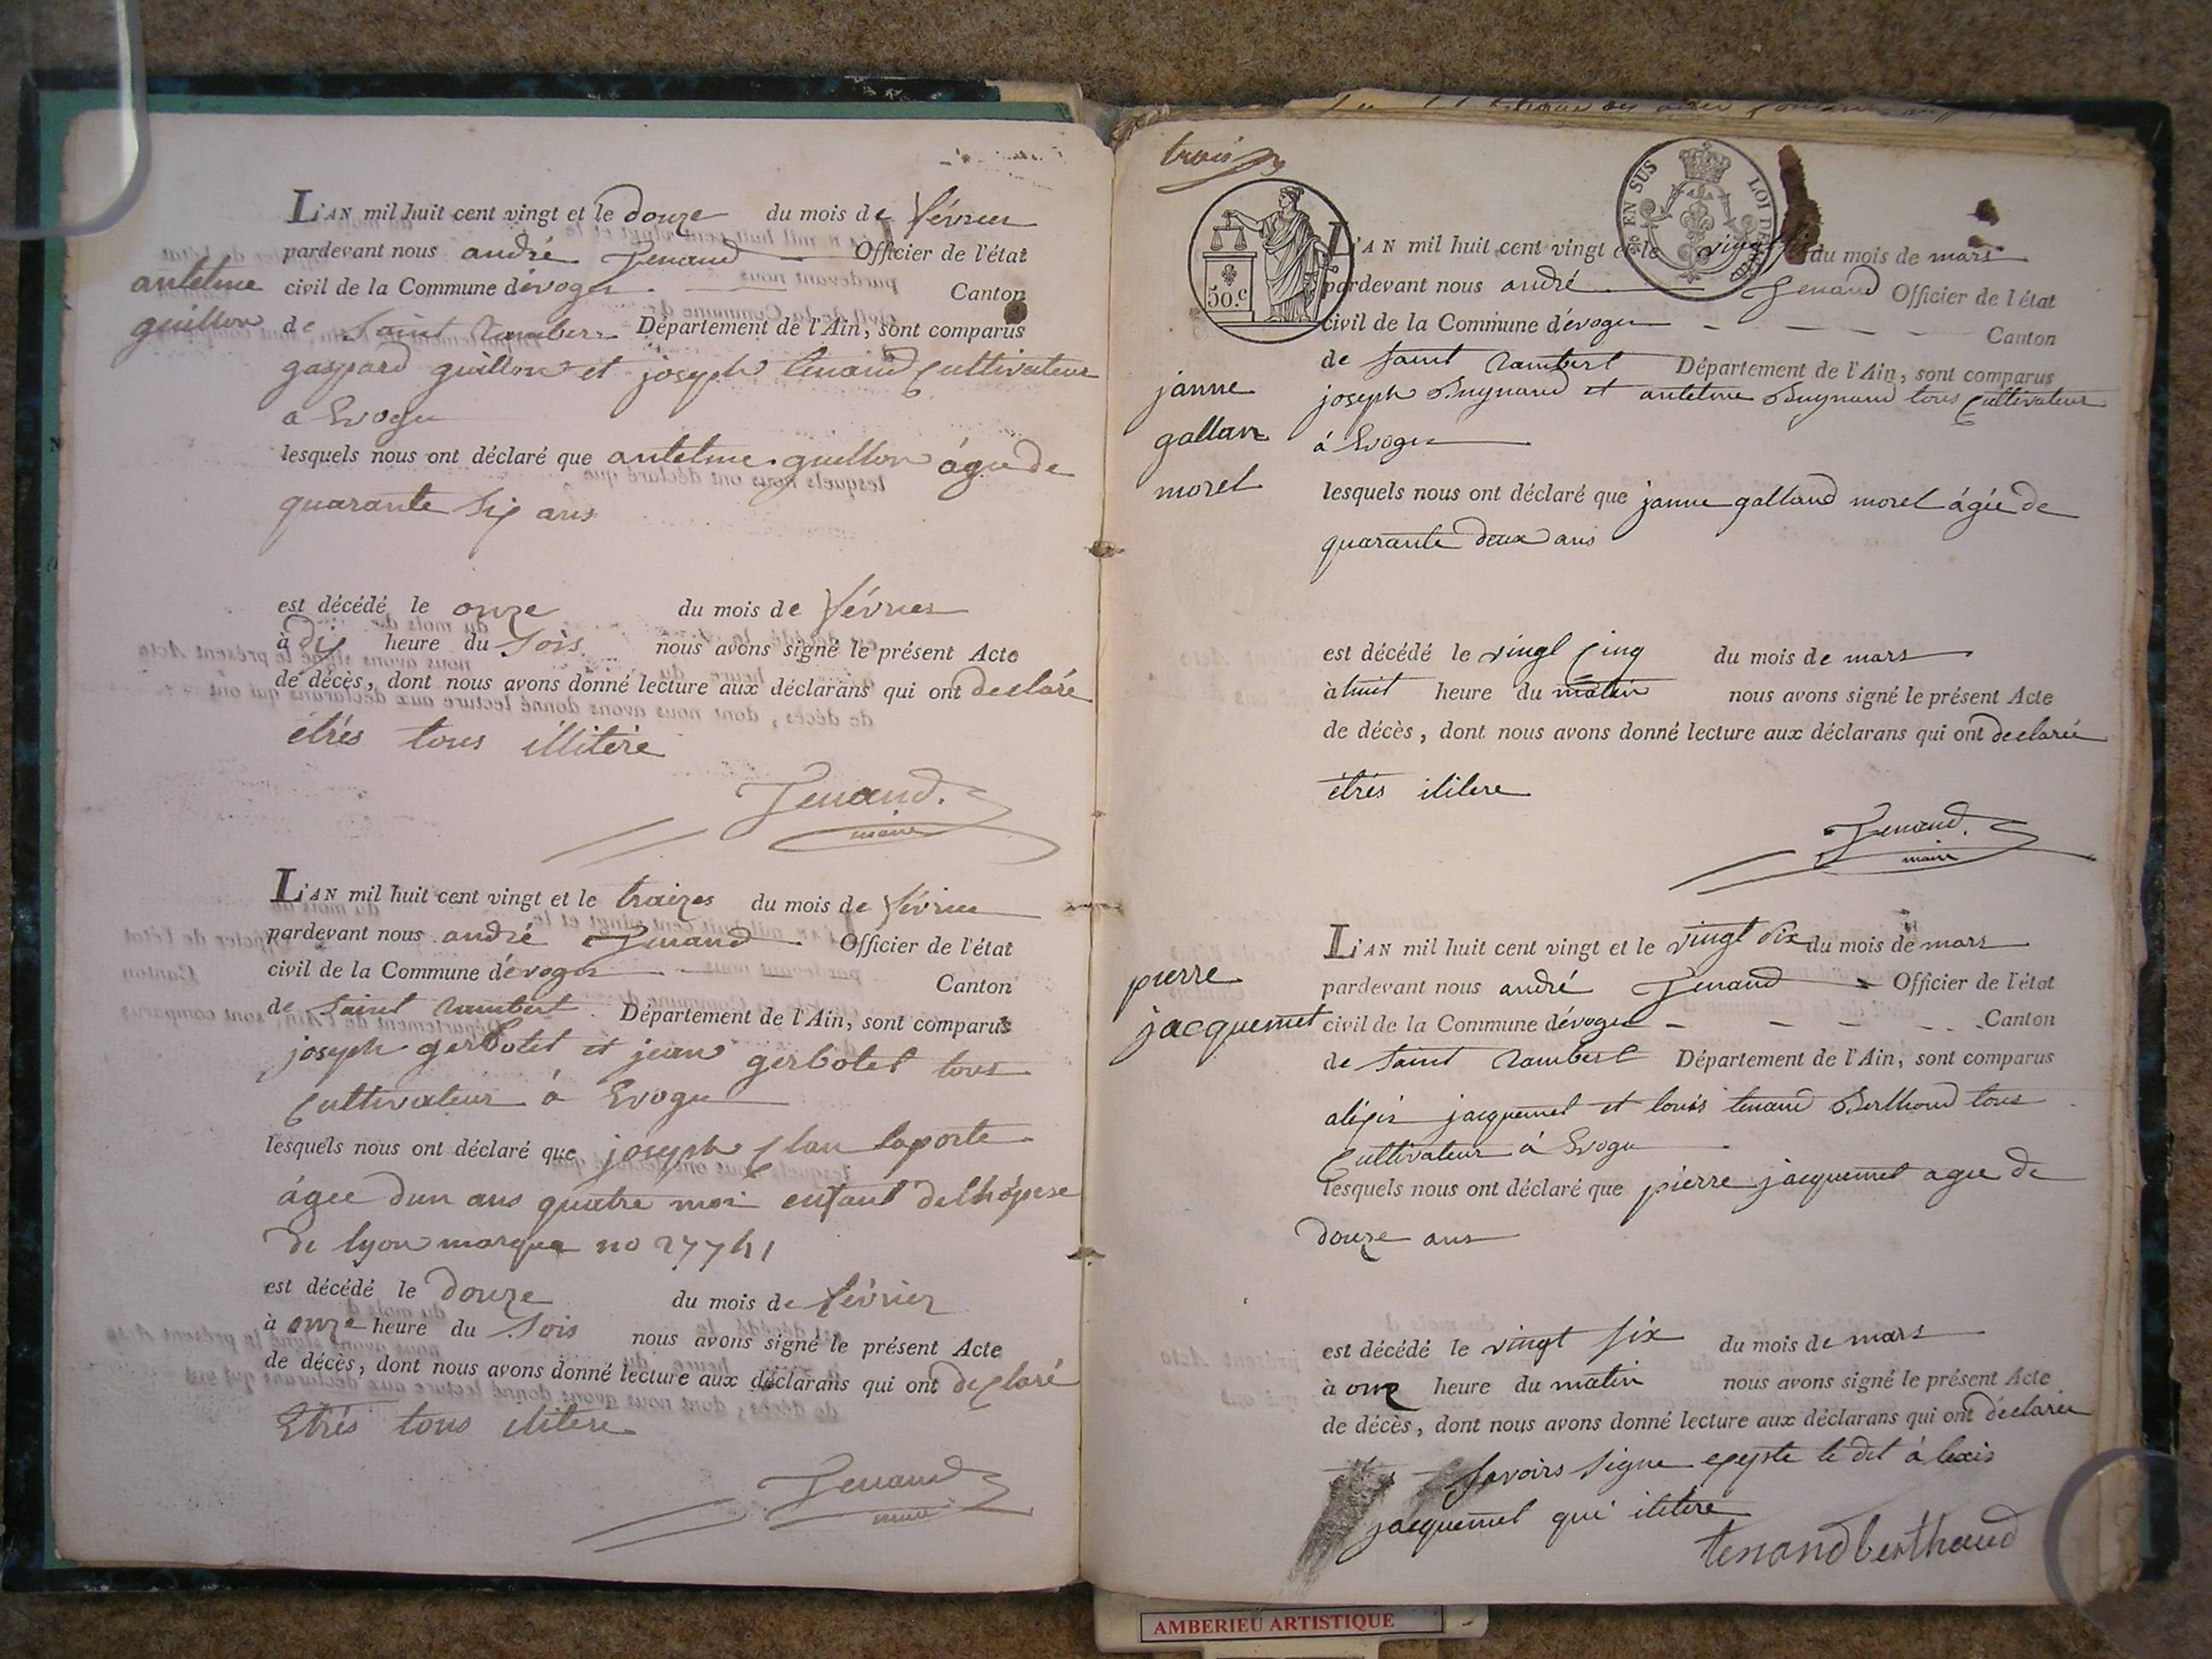 L'AN mil huit cent vingt et le douze du mois de février
pardevant nous andré Tenand Officier de l'état
civil de la Commune dévoges Canton
antelme
guillon
de Saint Rambert Département de l'Ain, sont comparus
gaspard guillon et joseph tenand Cultivateur
a Evoges
lesquels nous ont déclaré que antelme guillon ágée de
quarante Six ans
est décédé le onze du mois de février
à dix heure du Soir nous avons signé le présent Acte
de décès, dont nous avons donné lecture aux déclarans qui ont declaré
étrés tous illitére
Tenand.
maire
L'AN mil huit cent vingt et le traizes du mois de février
pardevant nous andré Tenand Officier de l'état
civil de la Commune d'évoges Canton
de Saint Rambert Département de l'Ain, sont comparus
joseph gerbotet et jean gerbotet tous
Cultivateur á Evoges
lesquels nous ont déclaré que joseph Clau laporte
ágee dun ans quatre moi enfant de lhópise
de lyon marque no 27741
est décédé le douze du mois de février
à onze heure du Soir nous avons signé le présent Acte
de décès, dont nous avons donné lecture aux déclarans qui ont declaré
Etrés tous ilitere
Tenand
maire
trois
EN SUS LOI DE
50.c
L'AN mil huit cent vingt et le vingt six du mois de mars
pardevant nous andré Tenand Officier de l'état
civil de la Commune d'évoges Canton
de Saint Rambert Département de l'Ain, sont comparus
janne
gallan
morel
joseph Buynand et antelme Buynand tous Cultivateur
á Evoges
lesquels nous ont déclaré que janne galland morel ágée de
quarante deux ans
est décédé le vingt Cinq du mois de mars
à huit heure du matin nous avons signé le présent Acte
de décès, dont nous avons donné lecture aux déclarans qui ont declarée
étrés ilitere
Tenand.
maire
L'AN mil huit cent vingt et le vingt Six du mois de mars
pierre
jacquemet
pardevant nous andré Tenand Officier de l'état
civil de la Commune d'évoges Canton
de Saint Rambert Département de l'Ain, sont comparus
aléxis jacquemet et louis tenand Berthoud tous
Cultivateur á Evoges
lesquels nous ont déclaré que pierre jacquemet agee de
douze ans
est décédé le vingt six du mois de mars
à onze heure du matin nous avons signé le présent Acte
de décès, dont nous avons donné lecture aux déclarans qui ont déclarée
Savoirs Signe exepte le dit á lexis
jacquemet qui ilitere
tenand berthaud
AMBERIEU ARTISTIQUE